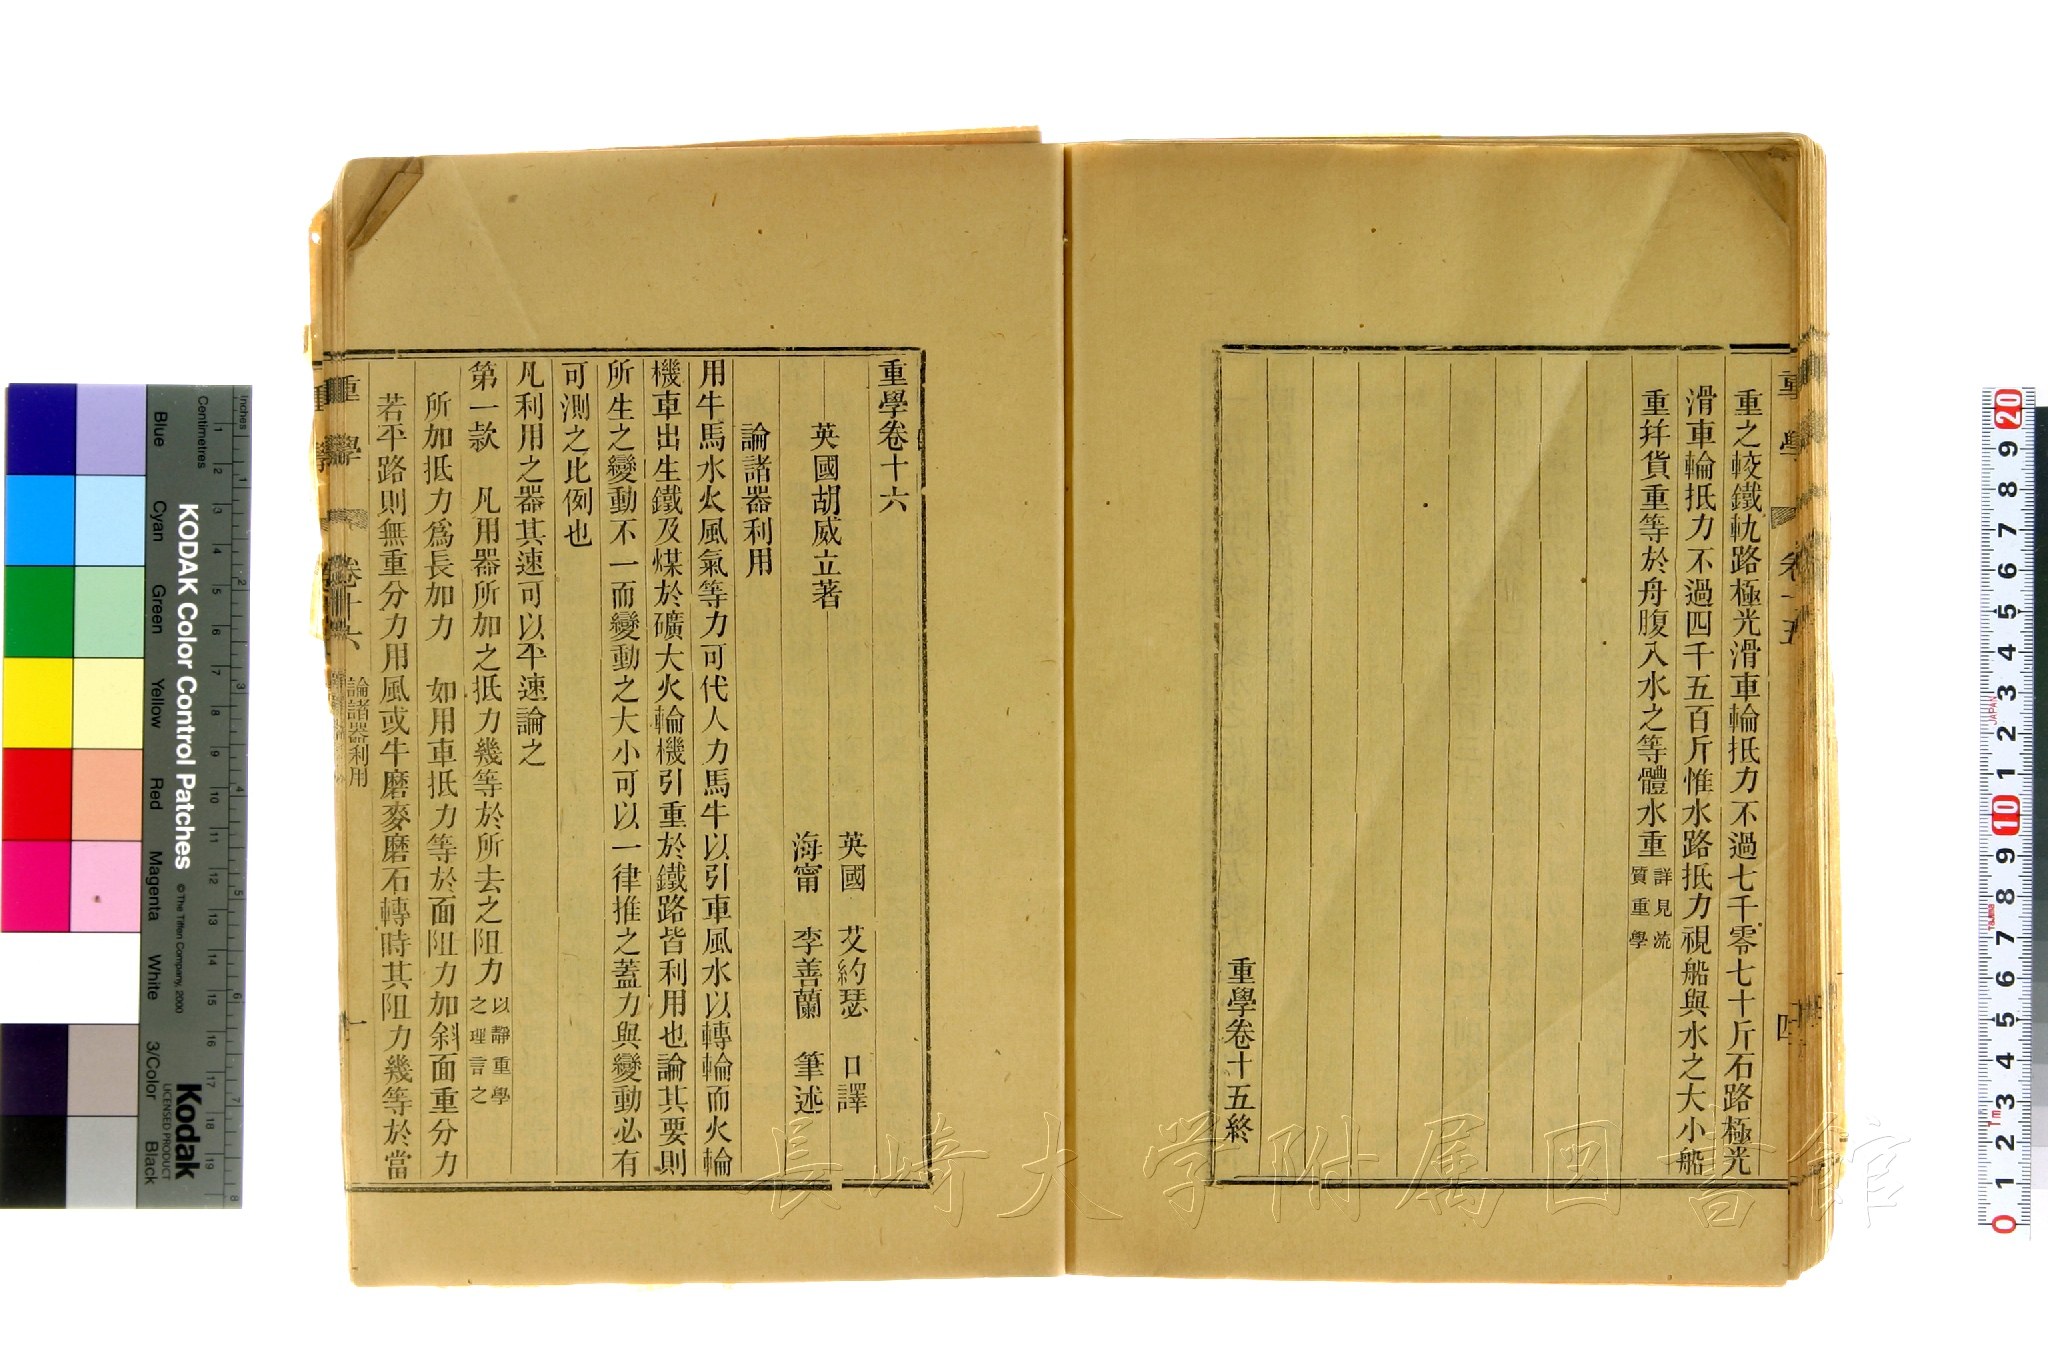 重之較鐵軌路極光滑車輪抵力不過七千零七十斤石路極光
滑車輪抵力不過四千五百斤惟水路抵力視船與水之大小船
重并貨重等於舟腹入水之等體水重詳見流質重學
重學卷十五終
重學
卷十五
重學卷十六
英國胡威立著
英國 艾約瑟 口譯
海甯 李善蘭 筆述
論諸器利用
用牛馬水火風氣等力可代人力馬牛以引車風水以轉輪而火輪
機車出生鐵及煤於礦大火輪機引重於鐵路皆利用也論其要則
所生之變動不一而變動之大小可以一律推之蓋力與變動必有
可測之比例也
凡利用之器其速可以平速論之
第一款 凡用器所加之抵力幾等於所去之阻力以靜重學之理言之
所加抵力爲長加力 如用車抵力等於面阻力加斜面重分力
若平路則無重分力用風或牛磨麥磨石轉時其阻力幾等於當
重學
卷十六
論諸器利用
一
長崎大学附属図書館
KODAK Color Control Patches
© The Tiffen Company, 2000
Kodak
LICENSED PRODUCT
Inches
Centimetres
Blue
Cyan
Green
Yellow
Red
Magenta
White
3/Color
Black
1 2 3 4 5 6 7 8
1 2 3 4 5 6 7 8 9 10 11 12 13 14 15 16 17 18 19
20 9 8 7 6 5 4 3 2 1 10 9 8 7 6 5 4 3 2 1 0
JAPAN